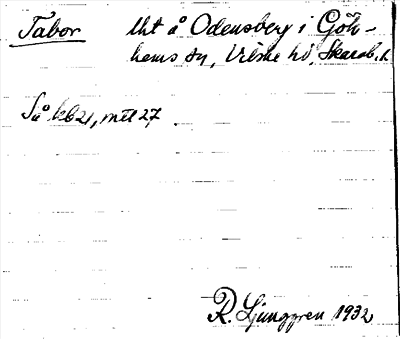 Tabor lht å Odensberg i Gök-
hems sn, Vilske hd, Skarab. l.
Så kb 21, mtl 27.
R. Ljunggren 1932